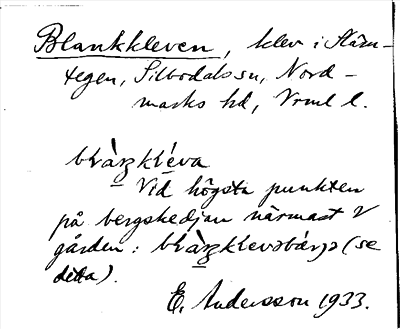 Blankkleven, klev i Stäm-
tegen, Silbodals sn, Nord-
marks hd, Vrml l.
blàŋkléva
Vid högsta punkten
på bergskedjan närmast V
gården: blàŋklevəbærjə (se
detta).
E. Andersson 1933.